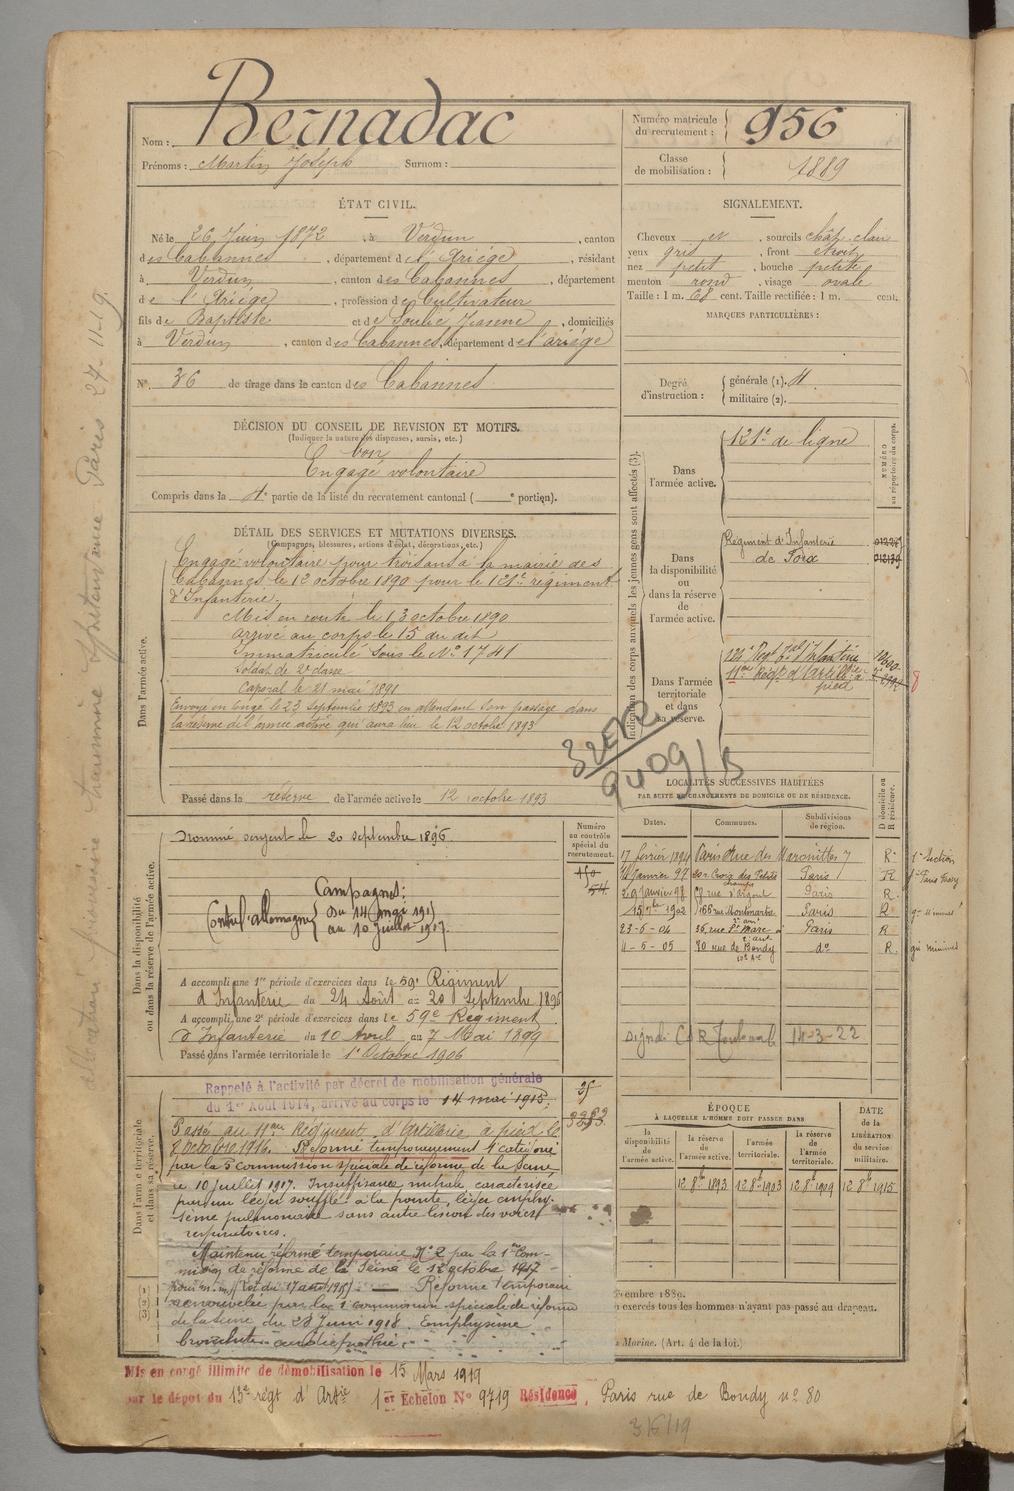 Nom : Bernadac
Prénoms : Martin Joseph Surnom :
Numéro matricule du recrutement : 956
Classe de mobilisation : 1889
ÉTAT CIVIL.
Né le 26 Juin 1872, à Verdun, canton
des Cabannes, département de l'Ariége, résidant
à Verdun, canton des Cabannes, département
de l'Ariége, profession de Cultivateur
fils de Baptiste et de Soulié, domiciliés
à Verdun, canton des Cabannes, département de l'ariége
N° 36 de tirage dans le canton des Cabannes
SIGNALEMENT.
Cheveux et, sourcils chât. clair
yeux gris, front étroit
nez petit, bouche petite
menton rond, visage ovale
Taille : 1 m. 68 cent. Taille rectifiée : 1 m. cent.
MARQUES PARTICULIÈRES :
Degré d'instruction : générale (1).
militaire (2).
DÉCISION DU CONSEIL DE REVISION ET MOTIFS.
(Indiquer la nature des dispenses, sursis, etc.)
bon
Engagé volontaire
Compris dans la 4e partie de la liste du recrutement cantonal ( e portion).
DÉTAIL DES SERVICES ET MUTATIONS DIVERSES.
(Campagnes, blessures, actions d'éclat, décorations, etc.)
Dans l'armée active.
Engagé volontaire pour trois ans à la mairie des
Cabannes le 12 octobre 1890 pour le 121e régiment
d'Infanterie.
Mis en route le 13 octobre 1890
arrivé au corps le 15 du dit
Immatriculé sous le N° 1741
Soldat de 2e classe
Caporal le 21 mai 1891
Envoyé en congé le 23 Septembre 1893 en attendant son passage dans
la réserve de l'armée active qui aura lieu le 12 octobre 1893
Passé dans la réserve de l'armée active le 12 octobre 1893
Dans la disponibilité ou dans la réserve de l'armée active.
Nommé sergent le 20 septembre 1896
Campagnes :
Contre l'allemagne du 14 mai 1915
au 10 Juillet 1917.
Numéro au contrôle spécial du recrutement.
A accompli une 1re période d'exercices dans le 59e Régiment
d'Infanterie du 24 Août au 20 Septembre 1896
A accompli une 2e période d'exercices dans le 59e Régiment
d'Infanterie du 10 Avril au 7 Mai 1899
Passé dans l'armée territoriale le 1er Octobre 1906
Dans l'armée territoriale et dans sa réserve.
Rappelé à l'activité par décret de mobilisation générale
du 1er Août 1914, arrivé au corps le 14 mai 1915.
Passé au 11me Régiment d'Artillerie à pied le
2 Octobre 1916. Réformé temporairement 1e catégorie
par la 3e commission spéciale de réforme de la Seine
le 10 juillet 1917. Insuffisance mitrale caractérisée
par un léger souffle à la pointe, léger emphy-
sème pulmonaire sans autre lésion des voies
respiratoires.
Maintenu réformé temporaire N° 2 par la 1re Com-
mission de réforme de la Seine le 12 octobre 1917
Réforme temporaire
renouvelée par la 1e commission spéciale de réforme
de la Seine du 28 Juin 1918. Emphysème
Mis en congé illimité de démobilisation le 15 Mars 1919
par le dépôt du 13e régt d'Artie 1er Echelon N° 9719 Résidence, Paris rue de Bondy n° 80
3/6/19
Indication des corps auxquels les jeunes gens sont affectés (3).
NUMÉRO au répertoire du corps.
Dans l'armée active. 121e de ligne
Dans la disponibilité ou dans la réserve de l'armée active.
Régiment d'Infanterie
de Foix
Dans l'armée territoriale et dans sa réserve.
11me Régt d'Artillie à
pied
LOCALITÉS SUCCESSIVES HABITÉES
PAR SUITE DE CHANGEMENTS DE DOMICILE OU DE RÉSIDENCE.
Dates. Communes. Subdivisions de région. D domicile ou R résidence.
17 février 1894 Paris Rue des Marronites 7 R
14 Janvier 97 20 r. Croix des Petits champs Paris R
29 Janvier 98 rue d'argout Paris R
1902 166 rue Montmartre Paris R
23-6-04 36 rue St Marc Paris R
4-5-05 70 rue de Bondy do R
14-3-22
ÉPOQUE
À LAQUELLE L'HOMME DOIT PASSER DANS
la disponibilité de l'armée active. la réserve de l'armée active. l'armée territoriale. la réserve de l'armée territoriale.
DATE de la LIBÉRATION du service militaire.
12 8bre 1893 12 8bre 1903 12 8bre 1909 12 8bre 1915
exercés tous les hommes n'ayant pas passé au drapeau.
Marine. (Art. 4 de la loi.)